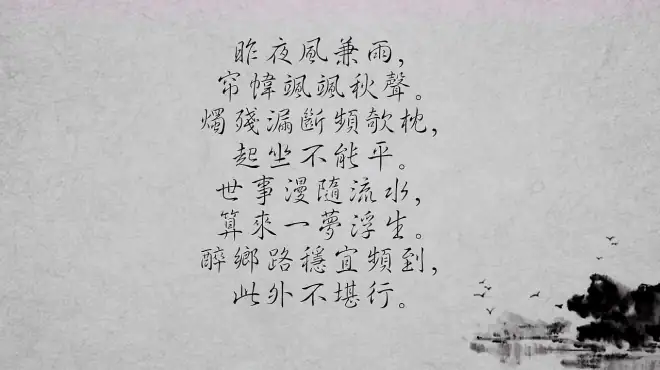 昨夜風兼雨,
帘幃颯颯秋聲。
燭殘漏斷頻欹枕,
起坐不能平。
世事漫隨流水,
算來一夢浮生。
醉鄉路穩宜頻到,
此外不堪行。